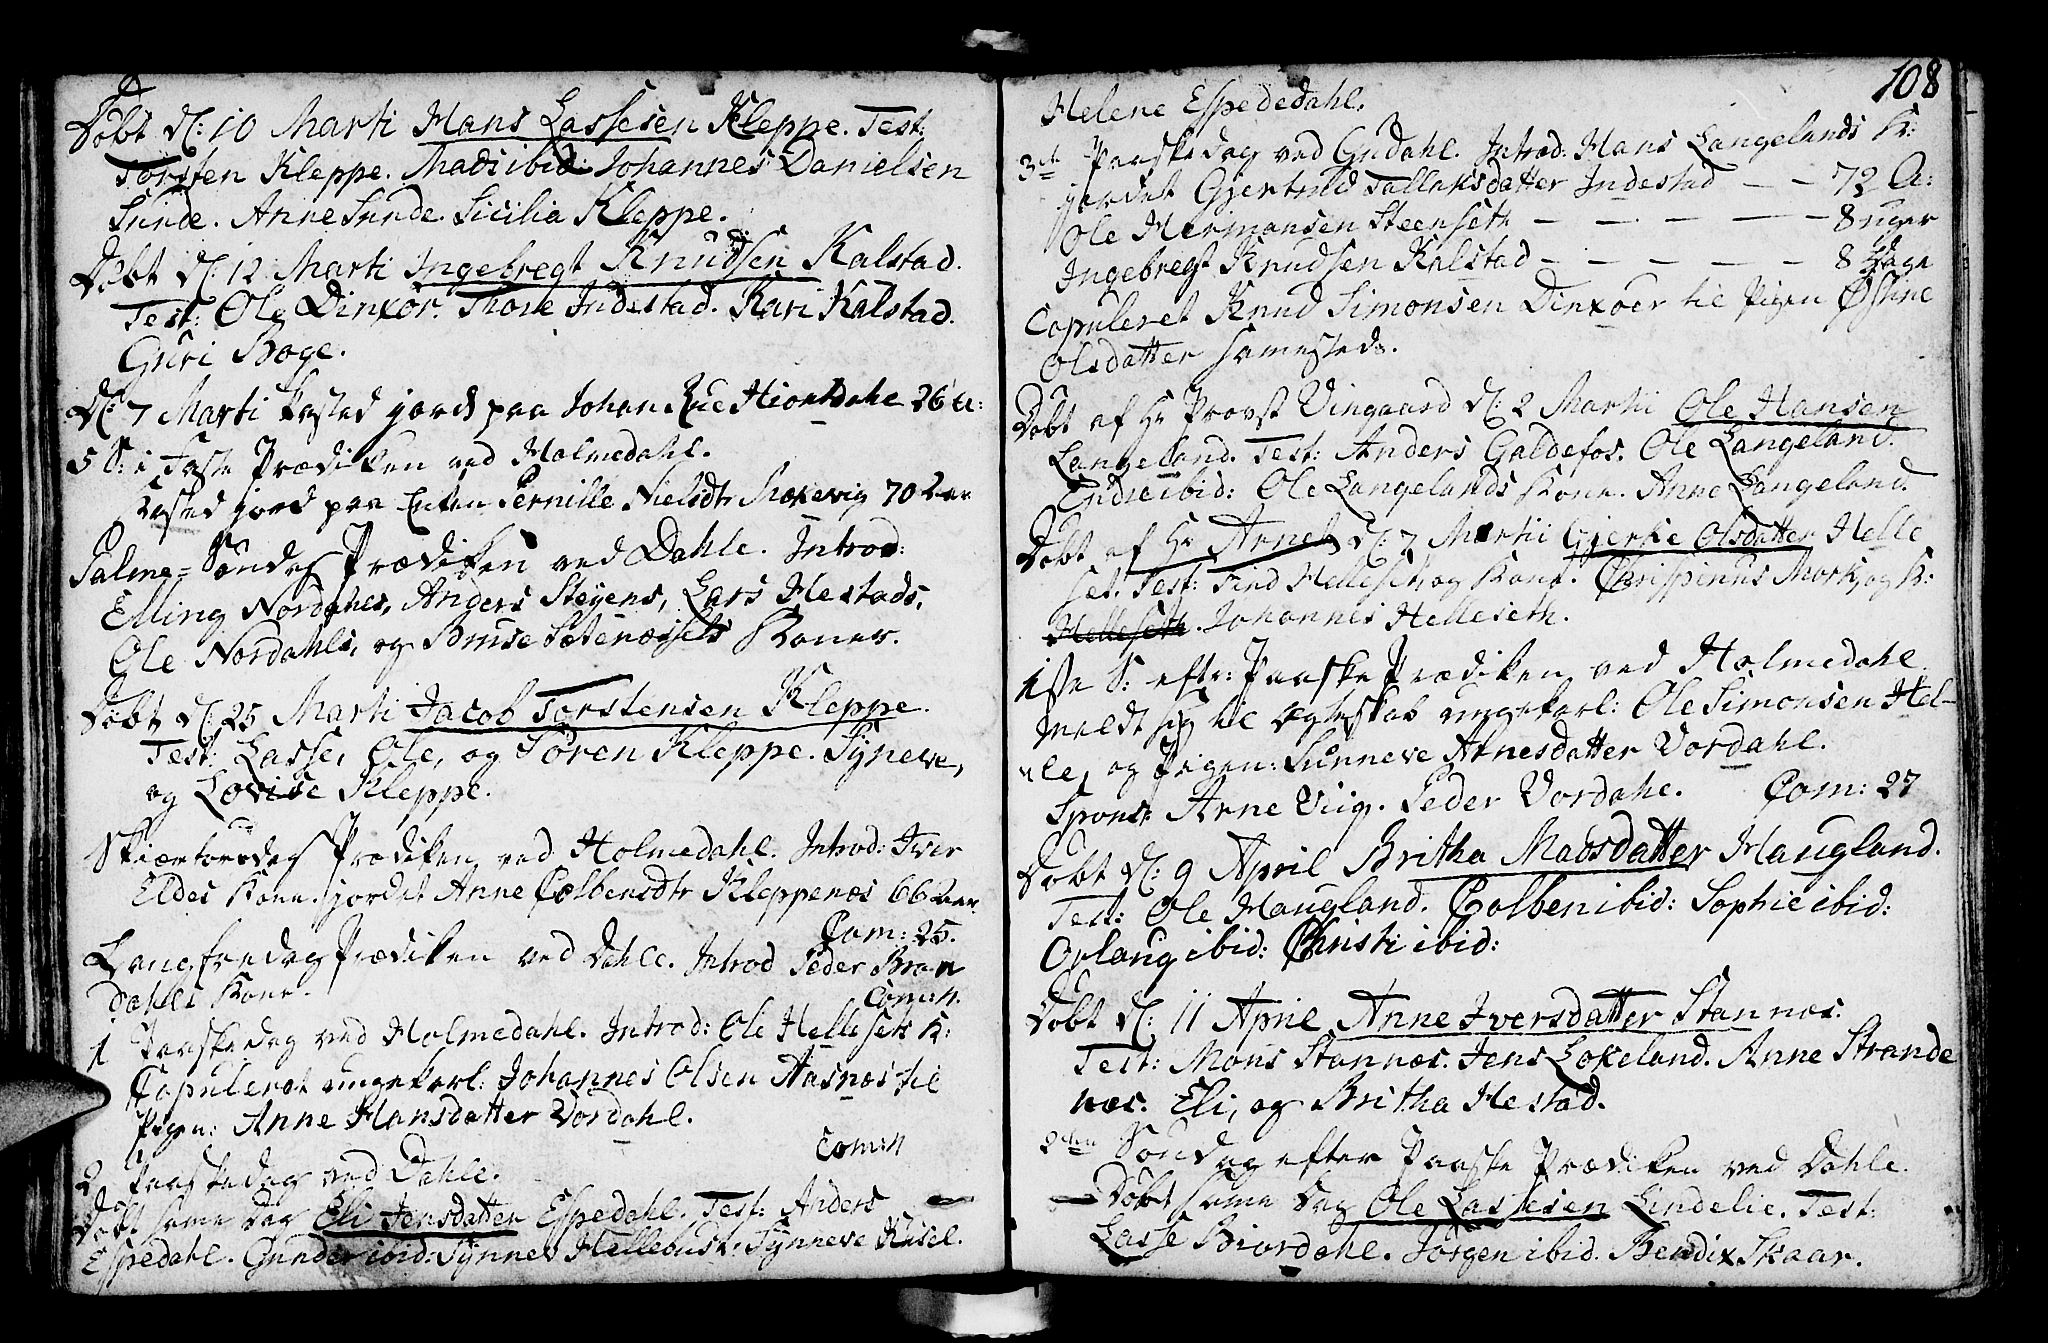 Døbt d: 10 Marti Hans Lassesen Kleppe. Test:
Torsten Kleppe. Mads ibid: Johannes Danielsen
Sunde. Anne Sunde. Sicilia Kleppe.
Døbt d: 12 Marti Ingebregt Knudsen Kalstad.
Test: Ole Dinxør. Thore Indestad. Kari Kalstad.
Guri Boge.
d: 7 Marti kasted jord paa Johan Rue Hiordahl 26 a:
5 S: i Faste Prædiken ved Holmedahl.
kasted jord paa Enken Pernille Nielsdtr 70 Aar
Palme-Søndag Prædiken ved Dahle. Introd:
Elling Nordahls, Anders Steyens, Lars Hestads,
Ole Nordahls, og Bruse Sætenæssets Koner.
Døbt d: 25 Marti Jacob Torstensen Kleppe.
Test: Lasse, Ole, og Søren Kleppe. Syneve,
og Lovise Kleppe.
Skiærtorsdag Prædiken ved Holmedahl. Introd: Iver
Eldes Kone. jordet Anne Colbensdtr Kleppenæs 66 Aar.
Com: 25.
Langfredag Prædiken ved Dahle. Introd Peder Bran
dahls Kone.
Com: 4.
1 Paaskedag ved Holmedahl. Introd: Ole Hellesets K:
Copuleret ungekarl: Johannes Olsen Aasnæs til
Pigen: Anne Hansdatter Vordahl.
Com: 4
2 Paaskedag ved Dahle.
Døbt samme Dag Eli Jensdatter Espedahl. Test: Anders
Espedahl. Gunder ibid: Synnev Hellebust. Synneve Kusel.
108
Helene Espedahl.
3de Paaskedag ved Gudahl. Introd: Hans Langelands K:
jordet Gjertrud Tallaksdatter Indestad — — 72 A:
Ole Hermansen Steenseth — — — — 8 uger
Ingebregt Knudsen Kalstad — — — — — 8 Dage
Copuleret Knud Simonsen Dinxøer til Pigen Østine
Olsdatter samesteds.
Døbt af Hr Provst Vingaard d: 2 Martii Ole Hansen
Langeland. Test: Anders Galdefos. Ole Langeland.
Endre ibid: Ole Langelands Kone. Anne Langeland.
Døbt af Hr Arnet d: 7 Martii Gjertie Olsdatter Helle
set. Test: Find Helleseth, og Kone. Chrispinus Mork, og K:
Helleseth. Johannes Helleseth.
1ste S: eftr: Paaske Prædiken ved Holmedahl.
Meldt sig til Ægteskab ungekarl: Ole Simonsen Hel-
le, og Pigen: Sunneve Arnesdatter Vordahl.
Spons: Arne Viig. Peder Vordahl. Com: 27
Døbt d: 9 April Britha Madsdatter Haugland.
Test: Ole Haugland. Colben ibid: Sophie ibid:
Orlaug ibid: Christi ibid:
Døbt d: 11 April Anne Iversdatter Stannæs.
Test: Mons Stannæs. Jens Løkeland. Anne Strande
næs. Eli, og Britha Hestad.
2den Søndag efter Paaske Prædiken ved Dahle.
Døbt samme Dag Ole Lassesen Lindelie. Test:
Lasse Biordahl. Jørgen ibid. Bendix Skaar.